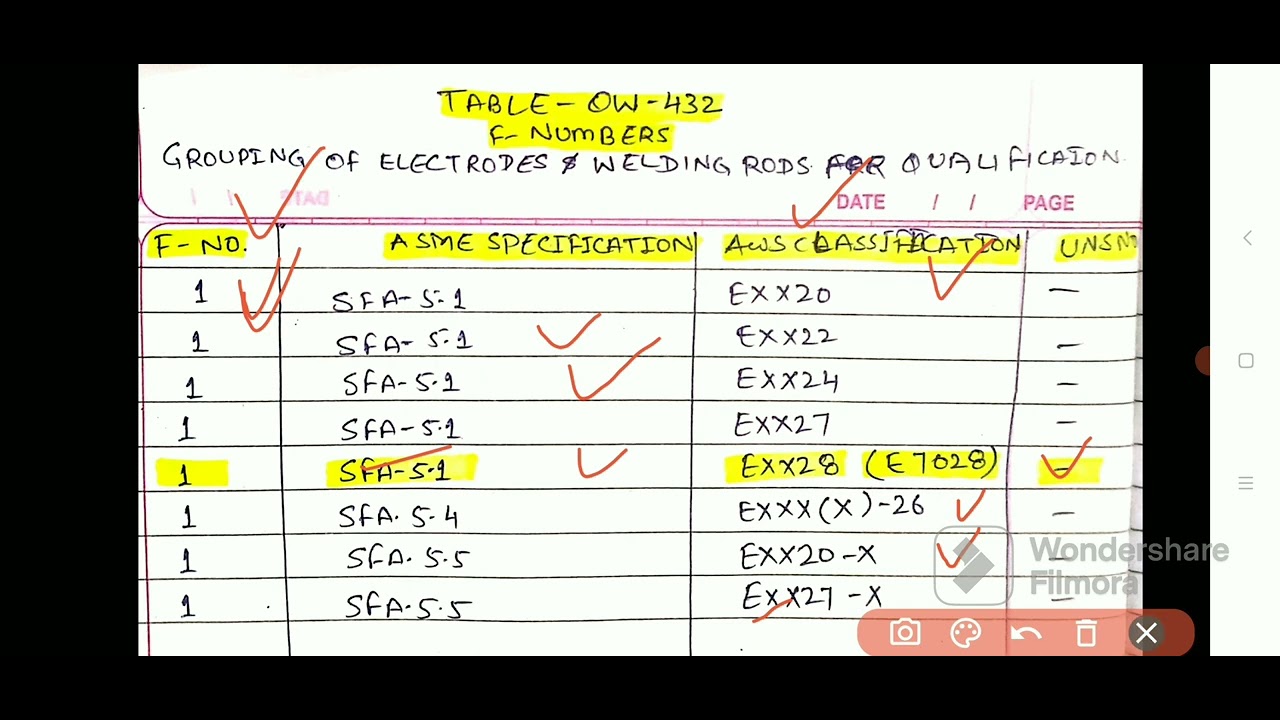 TABLE - QW-432
F- NUMBERS
GROUPING OF ELECTRODES & WELDING RODS FOR QUALIFICAION
DATE / / PAGE
F-NO. ASME SPECIFICATION AWS CLASSIFICATION UNS NO
1 SFA-5.1 EXX20 —
1 SFA-5.1 EXX22 —
1 SFA-5.1 EXX24 —
1 SFA-5.1 EXX27 —
1 SFA-5.1 EXX28 (E7028) —
1 SFA.5.4 EXXX(X)-26 —
1 SFA.5.5 EXX20-X —
1 SFA.5.5 EXX27-X —
Wondershare
Filmora